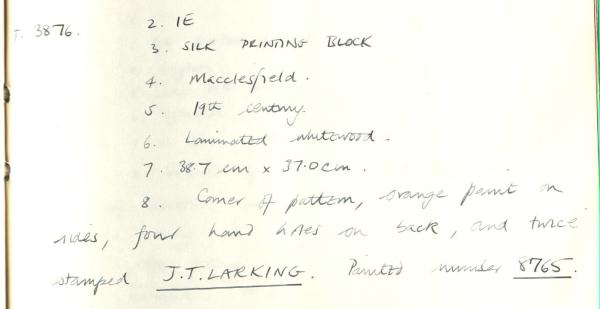 T. 3876. 2. IE
3. SILK PRINTING BLOCK
4. Macclesfield.
5. 19th century.
6. Laminated whitewood.
7. 38.7 cm x 37.0 cm.
8. Corner of pattern, orange paint on
sides, four hand holes on back, and twice
stamped J.T. LARKING. Painted number 8765.